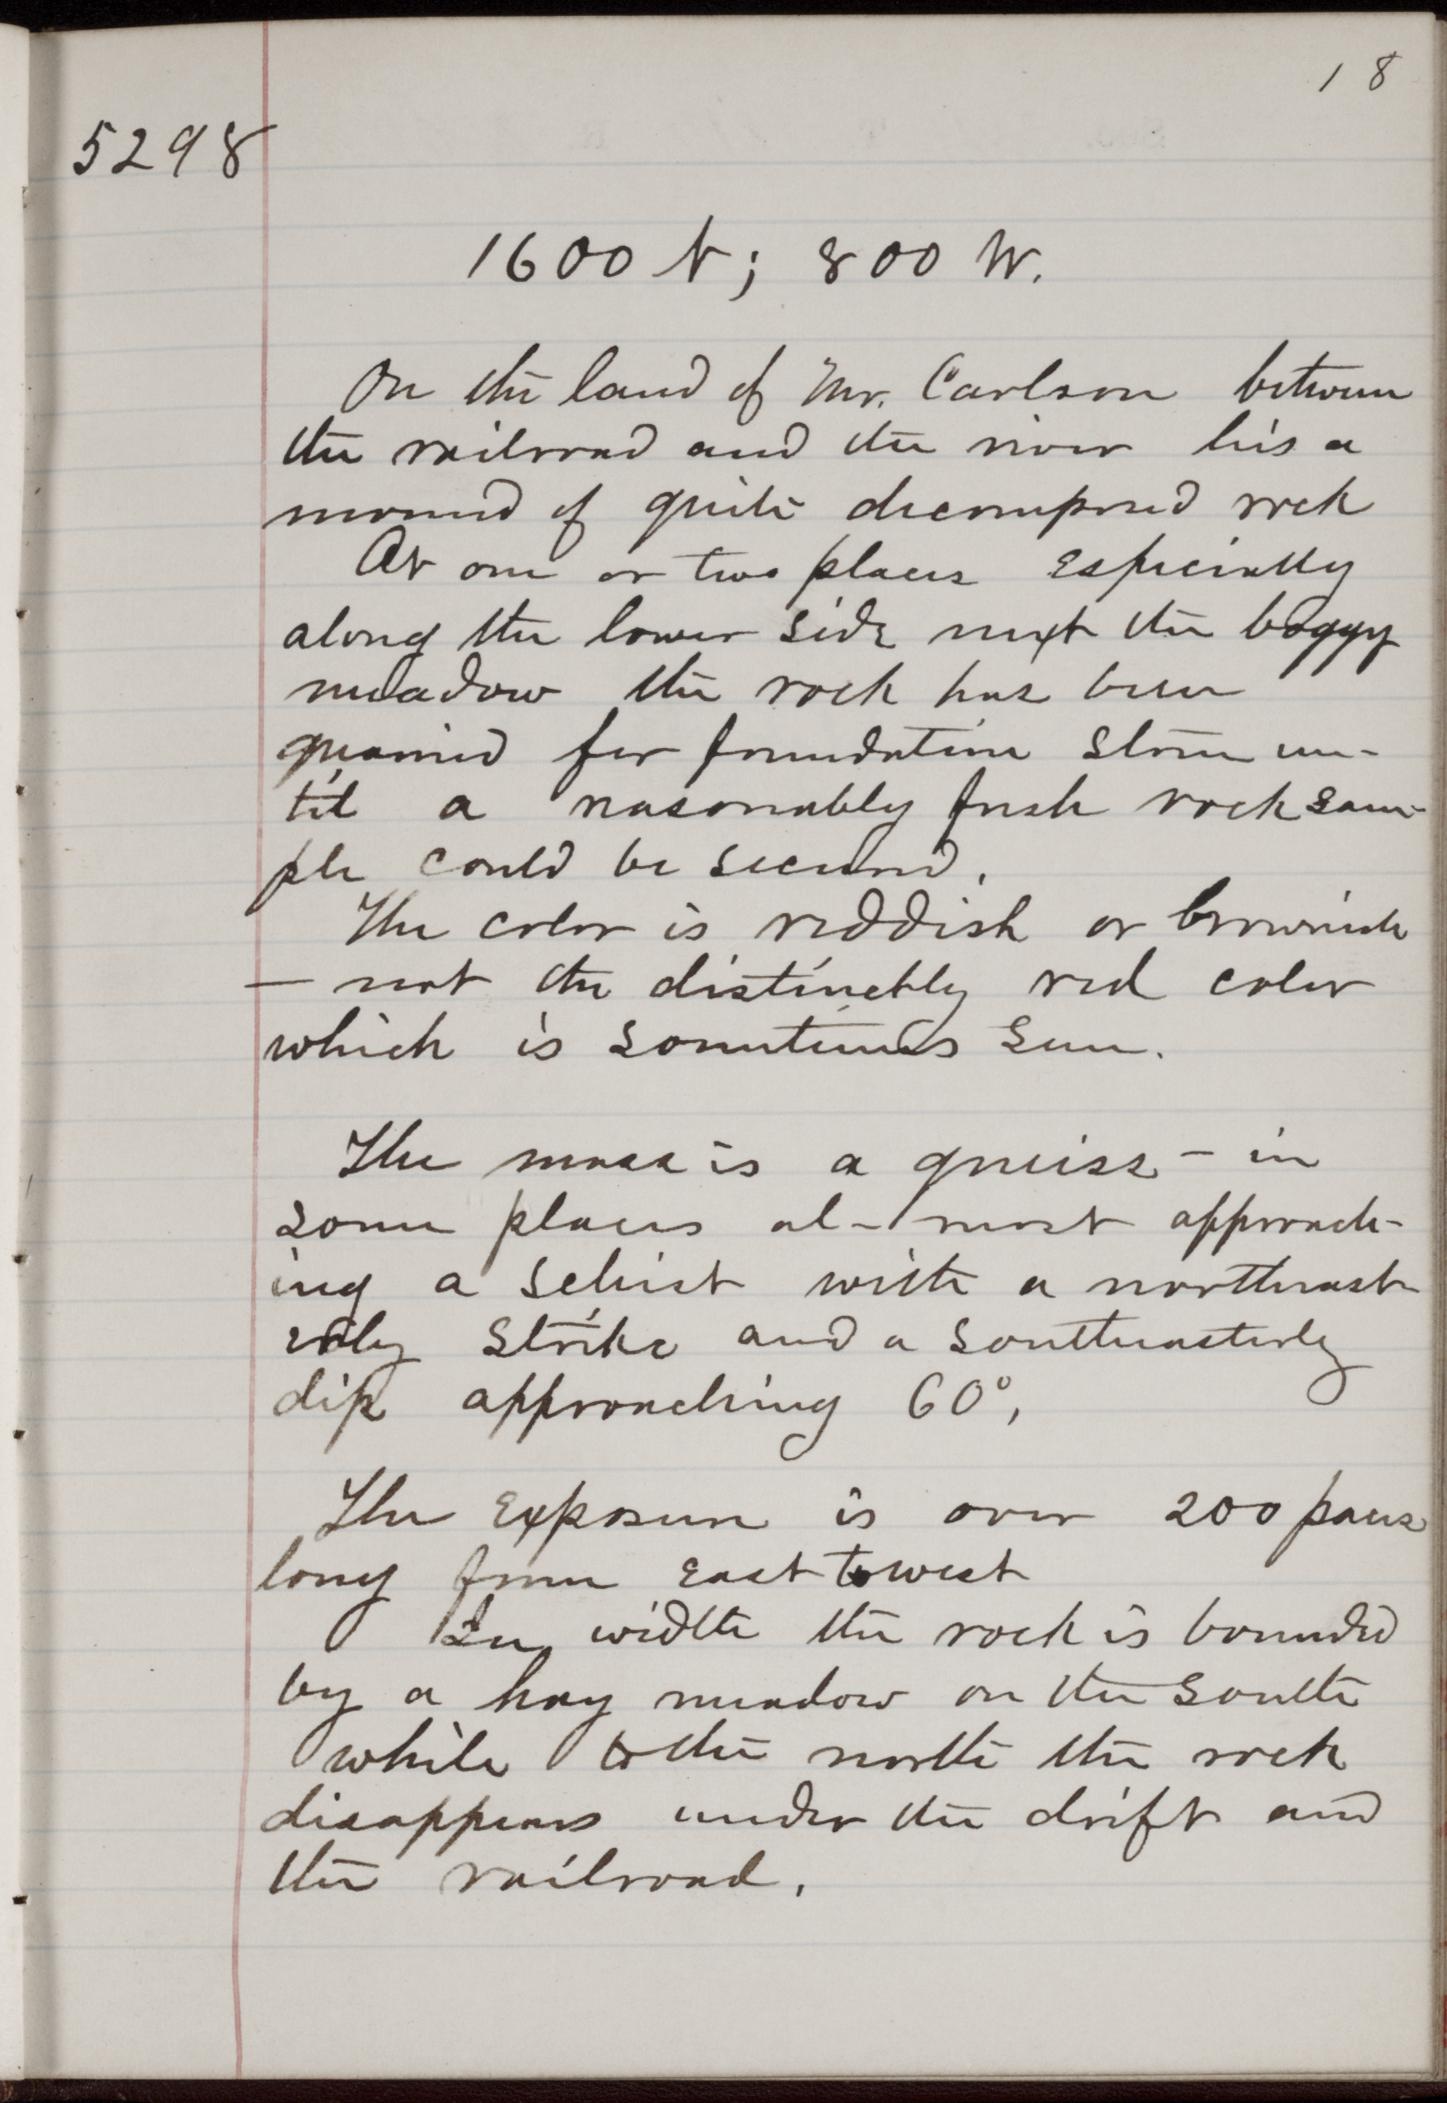 18
5298
1600 N; 800 W.
On the land of Mr. Carlson between
the railroad and the river lies a
mound of quite decomposed rock
At one or two places especially
along the lower side next the boggy
meadow the rock has been
quarried for foundation stone un-
til a reasonably fresh rock sam-
ple could be secured.
The color is reddish or brownish
– not the distinctly red color
which is sometimes seen.
The mass is a gneiss – in
some places al-most approach-
ing a schist with a northeast-
erly strike and a southeasterly
dip approaching 60°.
The exposure is over 200 paces
long from east to west
In width the rock is bounded
by a hay meadow on the south
while to the north the rock
disappears under the drift and
the railroad.